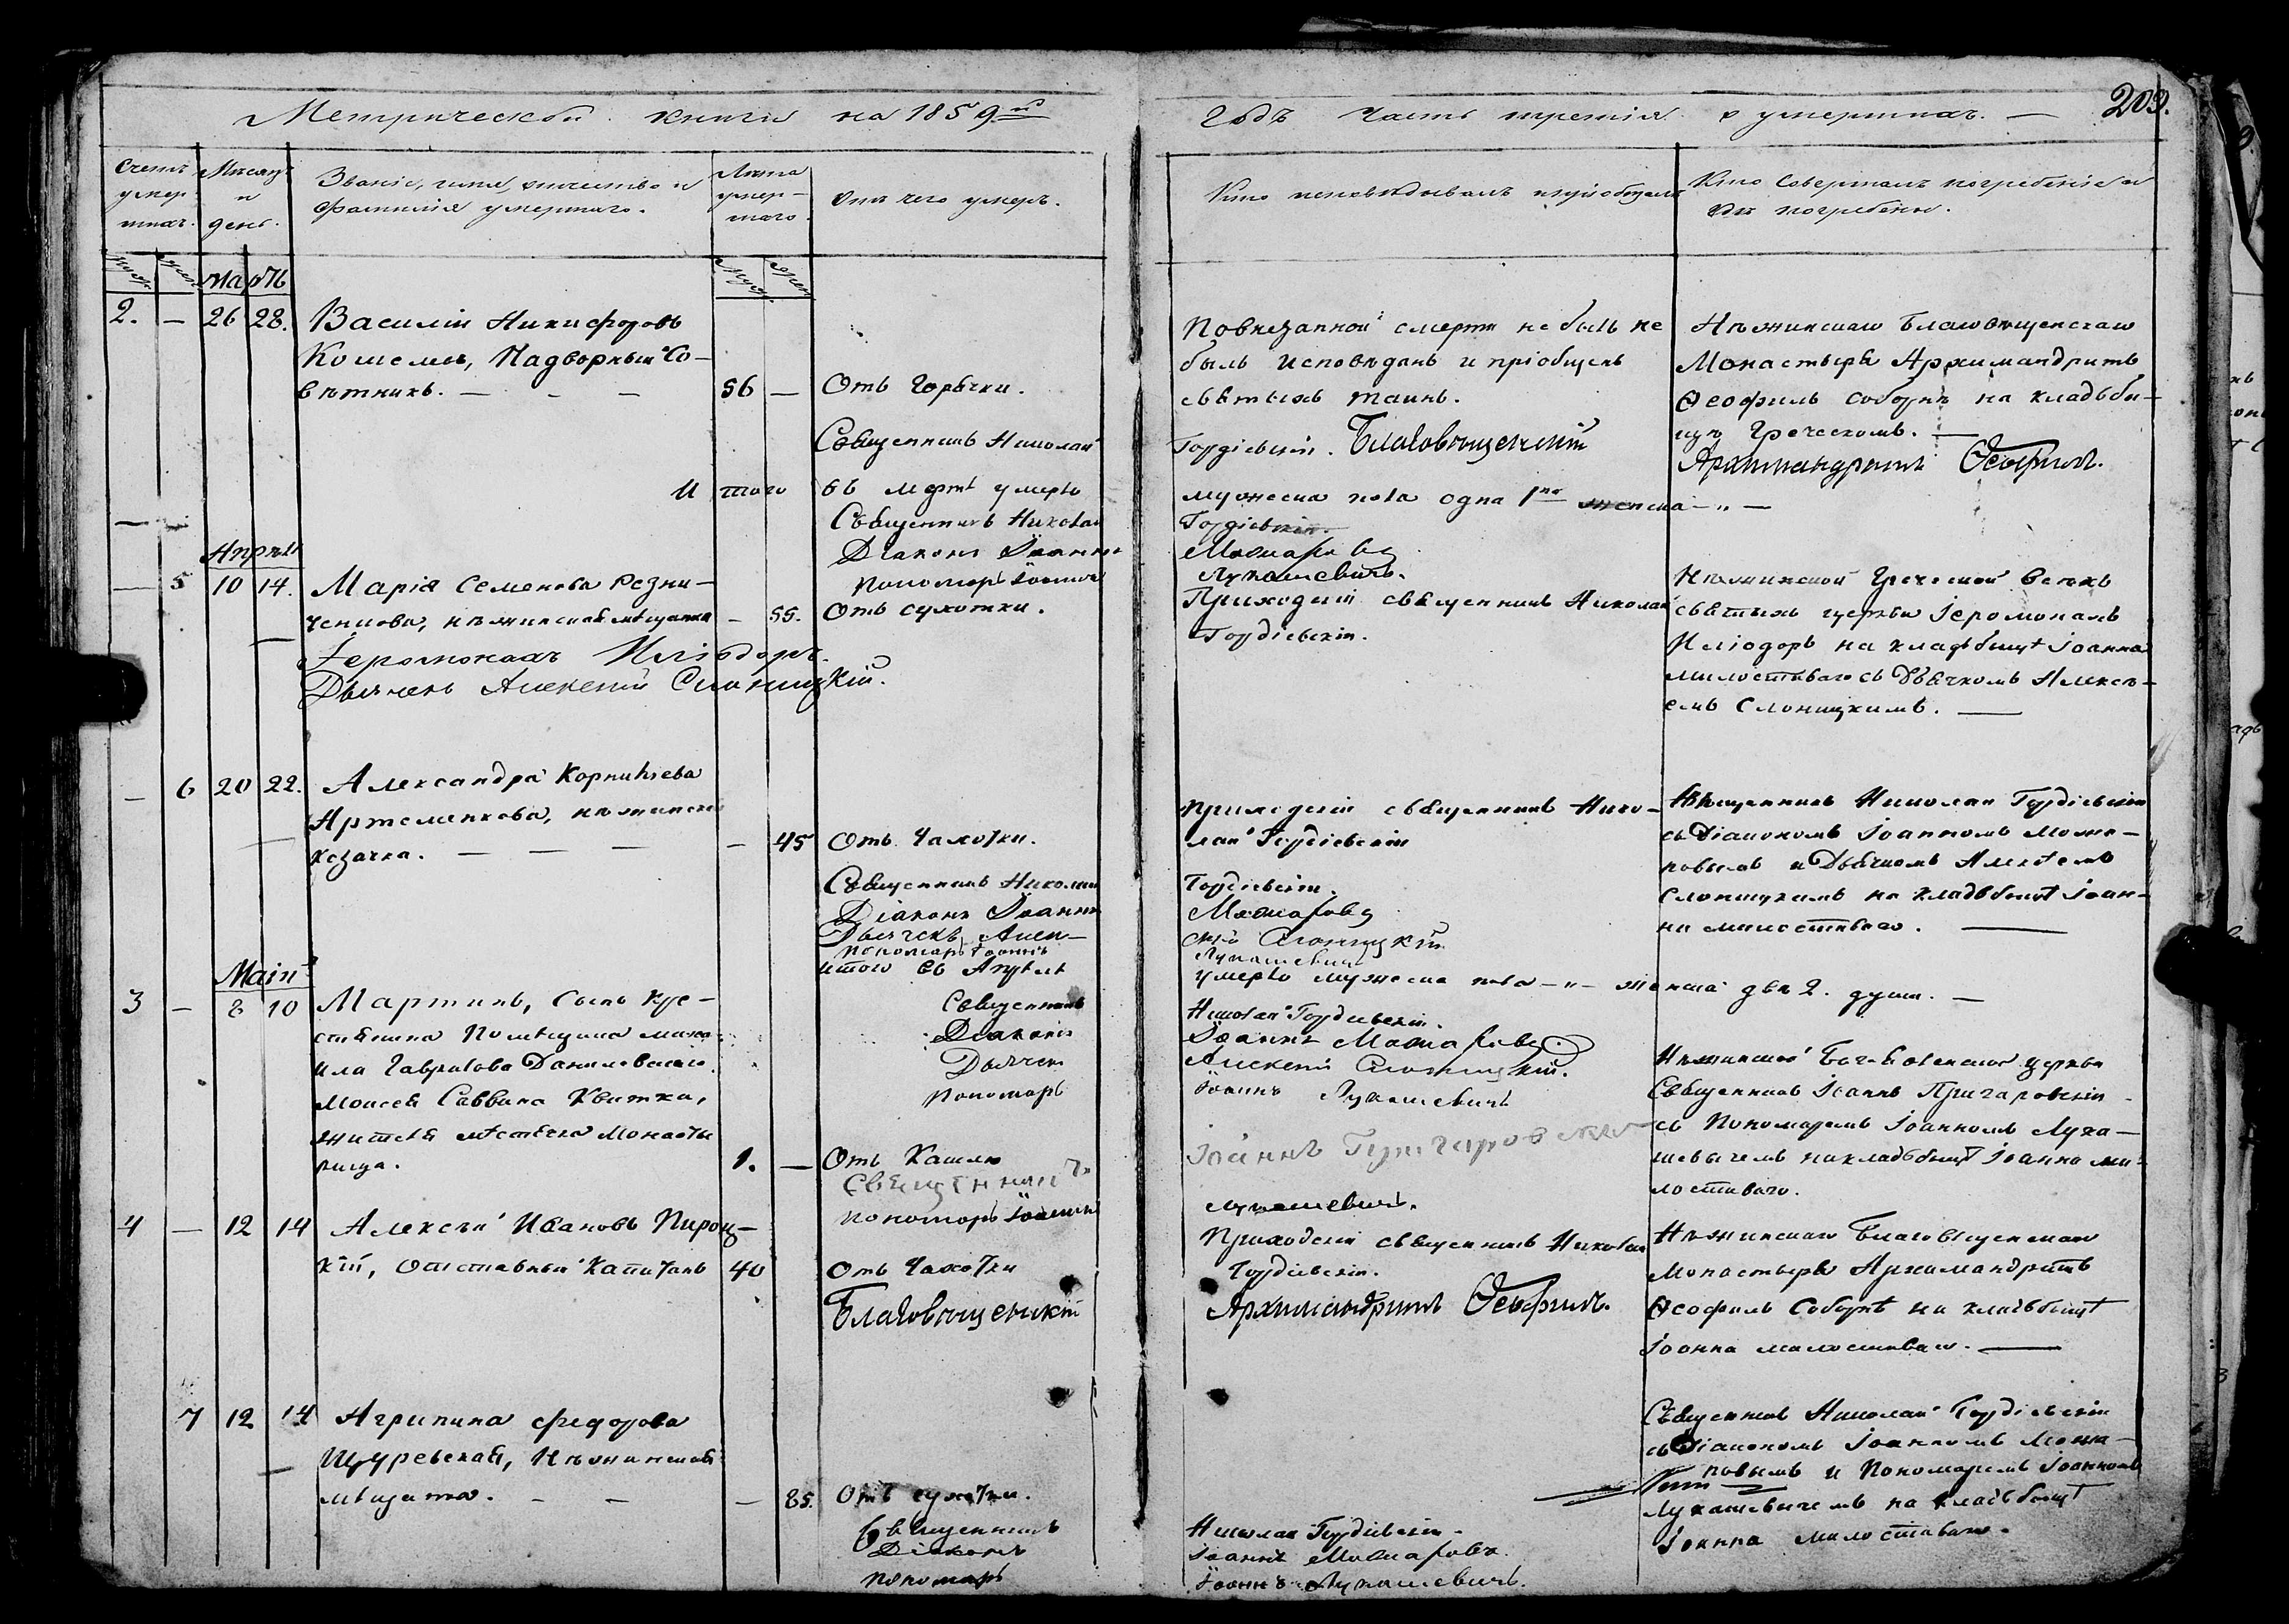 Метрической книги на 1859й
годъ часть третія о умершихъ. —
203.
Счетъ умер-шихъ.
Мѣсяцъ и день.
Званіе, имя, отчество и
фамилія умершаго.
Лѣта умер-шаго.
Отъ чего умеръ.
Кто исповѣдывалъ и пріобщалъ
Кто совершалъ погребеніе и
гдѣ погребены.
Мартъ
2. — 26 28. Василій Никифоровъ
Надворный Со-
вѣтникъ. — - — 56 — Отъ горячки.
Священникъ Николай
По внезапной смерти не былъ не
былъ исповѣданъ и пріобщенъ
святыхъ таинъ.
Гордіевскій. Благовѣщенскій
Нѣжинскаго Благовѣщенскаго
Монастыря Архимандритъ
Ѳеофилъ соборнѣ на кладби-
щѣ Греческомъ. —
Архимандритъ Ѳеофилъ.
Итого въ мартѣ умерло
мужеска пола одна 1на женска — „ —
Священникъ Николай
Гордіевскій.
Діаконъ Іоаннъ
Пономарь Іоаннъ
Лукашевичъ.
Апрѣль
— 5 10 14. Марія Семенова Резни-
ченкова, нѣжинская мѣщанка — 55. Отъ сухотки.
Іеромонахъ Иліодоръ.
Дьячекъ Алексѣй Слоницкій.
Приходскій священникъ Николай
Гордіевскій.
Нѣжинской Греческой всѣхъ
святыхъ церкви Іеромонахъ
Иліодоръ на кладбищѣ Іоанна
милостиваго съ Дьячкомъ Алексѣ-
емъ Слоницкимъ. —
— 6 20 22. Александра Корнильева
Артеменкова, нѣжинская
козачка. — — — — 45 Отъ чахотки.
Священникъ Николай
Діаконъ Іоаннъ
Дьячекъ Алек-
Пономарь Іоаннъ
Приходскій священникъ Нико-
лай Гордіевскій
Гордіевскій.
сѣй Слоницкій
Лукашевичъ
Священникъ Николай Гордіевскій
съ Діакономъ Іоанномъ
и Дьячкомъ Алексѣемъ
Слоницкимъ на кладбищѣ Іоан-
на милостиваго. —
Итого въ Апрѣлѣ
умерло мужеска пола — „ — женска двѣ 2. души. —
Священникъ
Діаконъ
Дьячекъ
Пономарь
Николай Гордіевскій.
Іоаннъ
Алексѣй Слоницкій.
Іоаннъ Лукашевичъ
Маій
3 — 8 10 Мартинъ, сынъ кре-
стьянина помѣщика миха-
ила Гаврилова Данилевскаго
Моисея Саввина Квитки,
жителя мѣстечка Монасты
рища. 1. — Отъ Кашлю
Священникъ
Пономарь Іоаннъ
Іоаннъ Пригаровскій
Лукашевичъ.
Нѣжинской церкви
Священникъ Іоаннъ Пригаровскій
съ Пономаремъ Іоанномъ Лука-
шевичемъ на кладбищѣ Іоанна ми-
лостиваго.
4 — 12 14 Алексѣй Ивановъ Пироц-
кій, отставный Капитанъ 40 Отъ чахотки
Благовѣщенскій
Приходскій священникъ Николай
Гордіевскій.
Архимандритъ Ѳеофилъ.
Нѣжинскаго Благовѣщенскаго
Монастыря Архимандритъ
Ѳеофилъ Соборнѣ на кладбищѣ
Іоанна милостиваго. —
7 12 14 Агрипина Федорова
Щуревская, Нѣжинская
мѣщанка. - — — 85. Отъ сухотки.
Священникъ
Діаконъ
Пономарь
Николай Гордіевскій.
Іоаннъ
Іоаннъ Лукашевичъ.
Священникъ Николай Гордіевскій
съ Діакономъ Іоанномъ
и Пономаремъ Іоанномъ
Лукашевичемъ на кладбищѣ
Іоанна милостиваго.